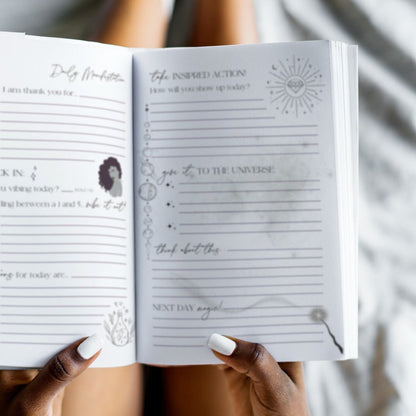 Daily Manifestation
I am thank you for..
CK IN:
u vibing today?
ling between a 1 and 5, vibe it out!
ons for today are..
take INSPIRED ACTION!
How will you show up today?
give it, TO THE UNIVERSE
think about this..
NEXT DAY magic!